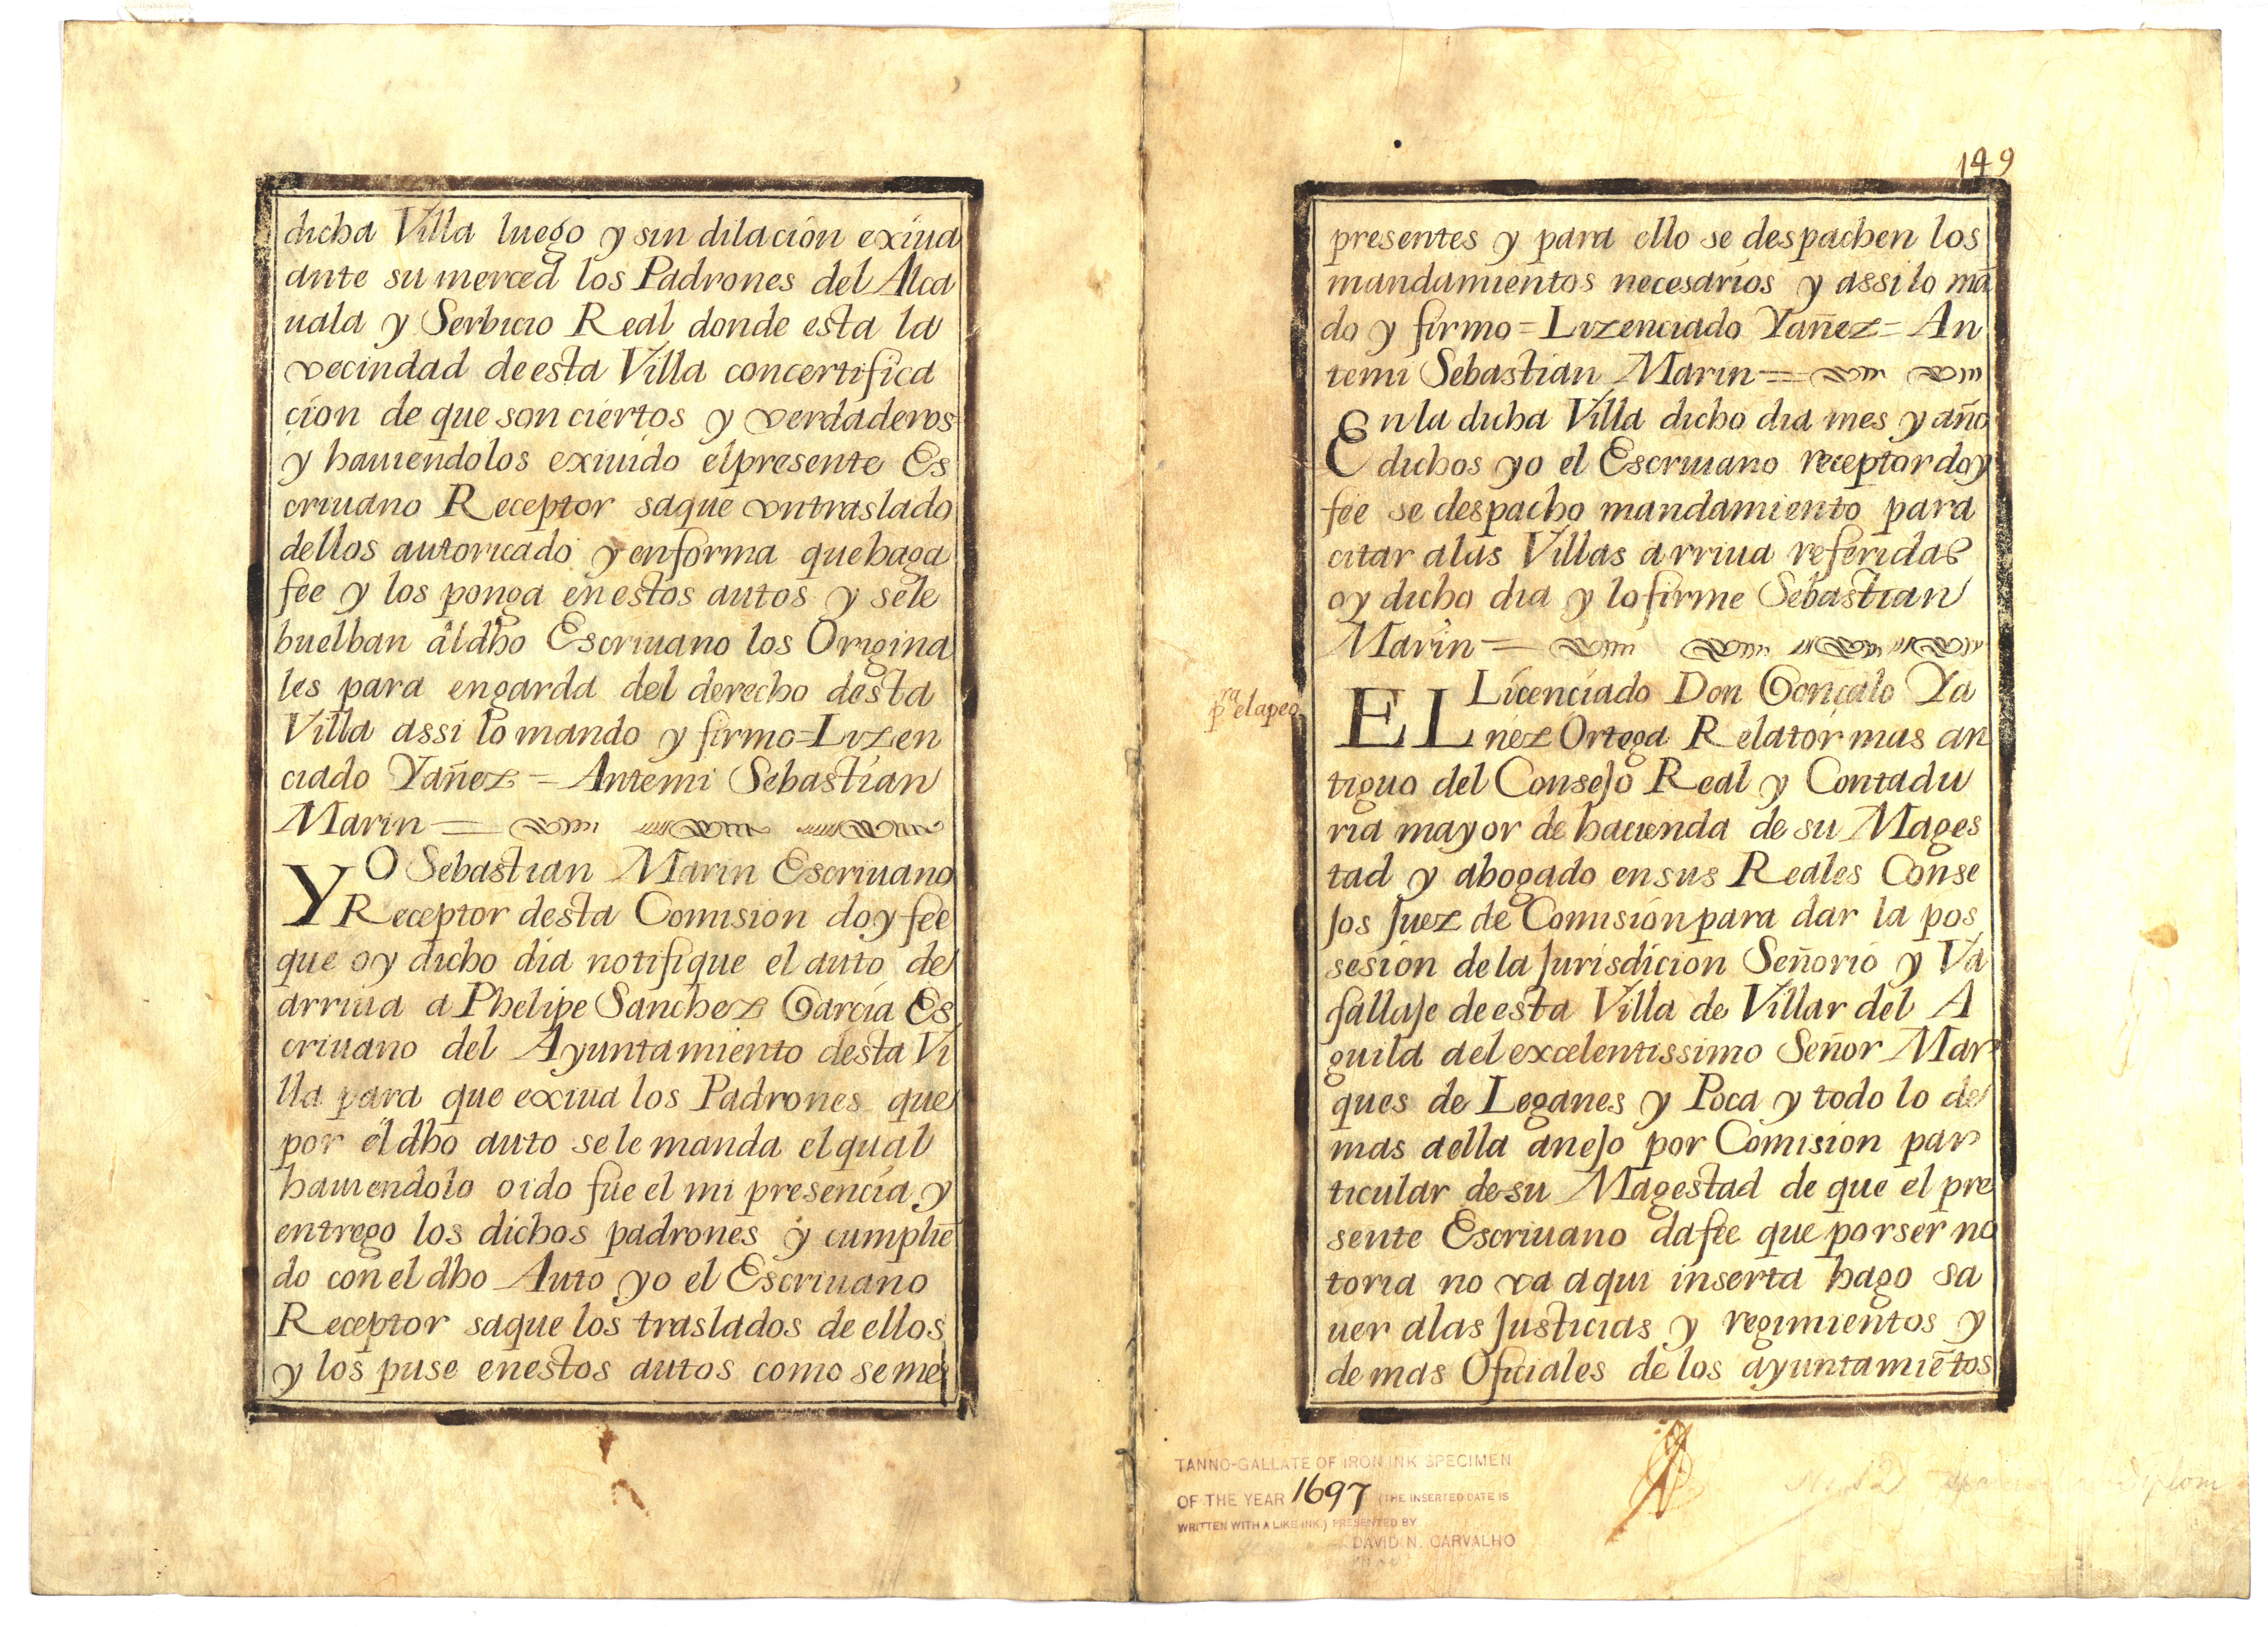 dicha Villa luego y sin dilacion exiua
ante su merced los Padrones del Alca
uala y Serbicio Real donde esta la
vecindad de esta Villa con certifica
cion de que son ciertos y verdaderos
y hauiendolos exiuido el presente Es
criuano Receptor saque vn traslado
dellos autoricado y en forma que haga
fee y los ponga en estos autos y se le
buelban al dho Escriuano los Origina
les para en garda del derecho desta
Villa assi lo mando y firmo=Lizen
ciado Yañez = Antemi Sebastian
Marin =
YO Sebastian Marin Escriuano
Receptor desta Comision doy fee
que oy dicho dia notifique el auto de
arriua a Phelipe Sanchez Garcia Es
criuano del Ayuntamiento desta Vi
lla para que exiua los Padrones que
por el dho auto se le manda el qual
hauiendolo oido fue el mi presencia y
entrego los dichos padrones y cumpliē
do con el dho Auto yo el Escriuano
Receptor saque los traslados de ellos
y los puse en estos autos como se me
149
presentes y para ello se despachen los
mandamientos necesarios y assi lo mā
do y firmo = Lizenciado Yañez = An
temi Sebastian Marin =
En la dicha Villa dicho dia mes y año
dichos yo el Escriuano receptor doy
fee se despacho mandamiento para
citar a las Villas arriua referidas
oy dicho dia y lo firme Sebastian
Marin =
pra el apeo
EL Licenciado Don Gonçalo Ya
ñez Ortega Relator mas an
tiguo del Consejo Real y Contadu
ria mayor de hacienda de su Mages
tad y abogado en sus Reales Conse
jos Juez de Comision para dar la pos
sesion de la Jurisdicion Señorio y Va
sallaje de esta Villa de Villar del A
guila al excelentissimo Señor Mar
ques de Leganes y Poca y todo lo de
mas aella anejo por Comision par
ticular de su Magestad de que el pre
sente Escriuano da fee que por ser no
toria no va aqui inserta hago sa
uer a las Justicias y regimientos y
demas Oficiales de los ayuntamiētos
TANNO-GALLATE OF IRON INK SPECIMEN
OF THE YEAR 1697 (THE INSERTED DATE IS
WRITTEN WITH A LIKE INK.) PRESENTED BY
DAVID N. CARVALHO